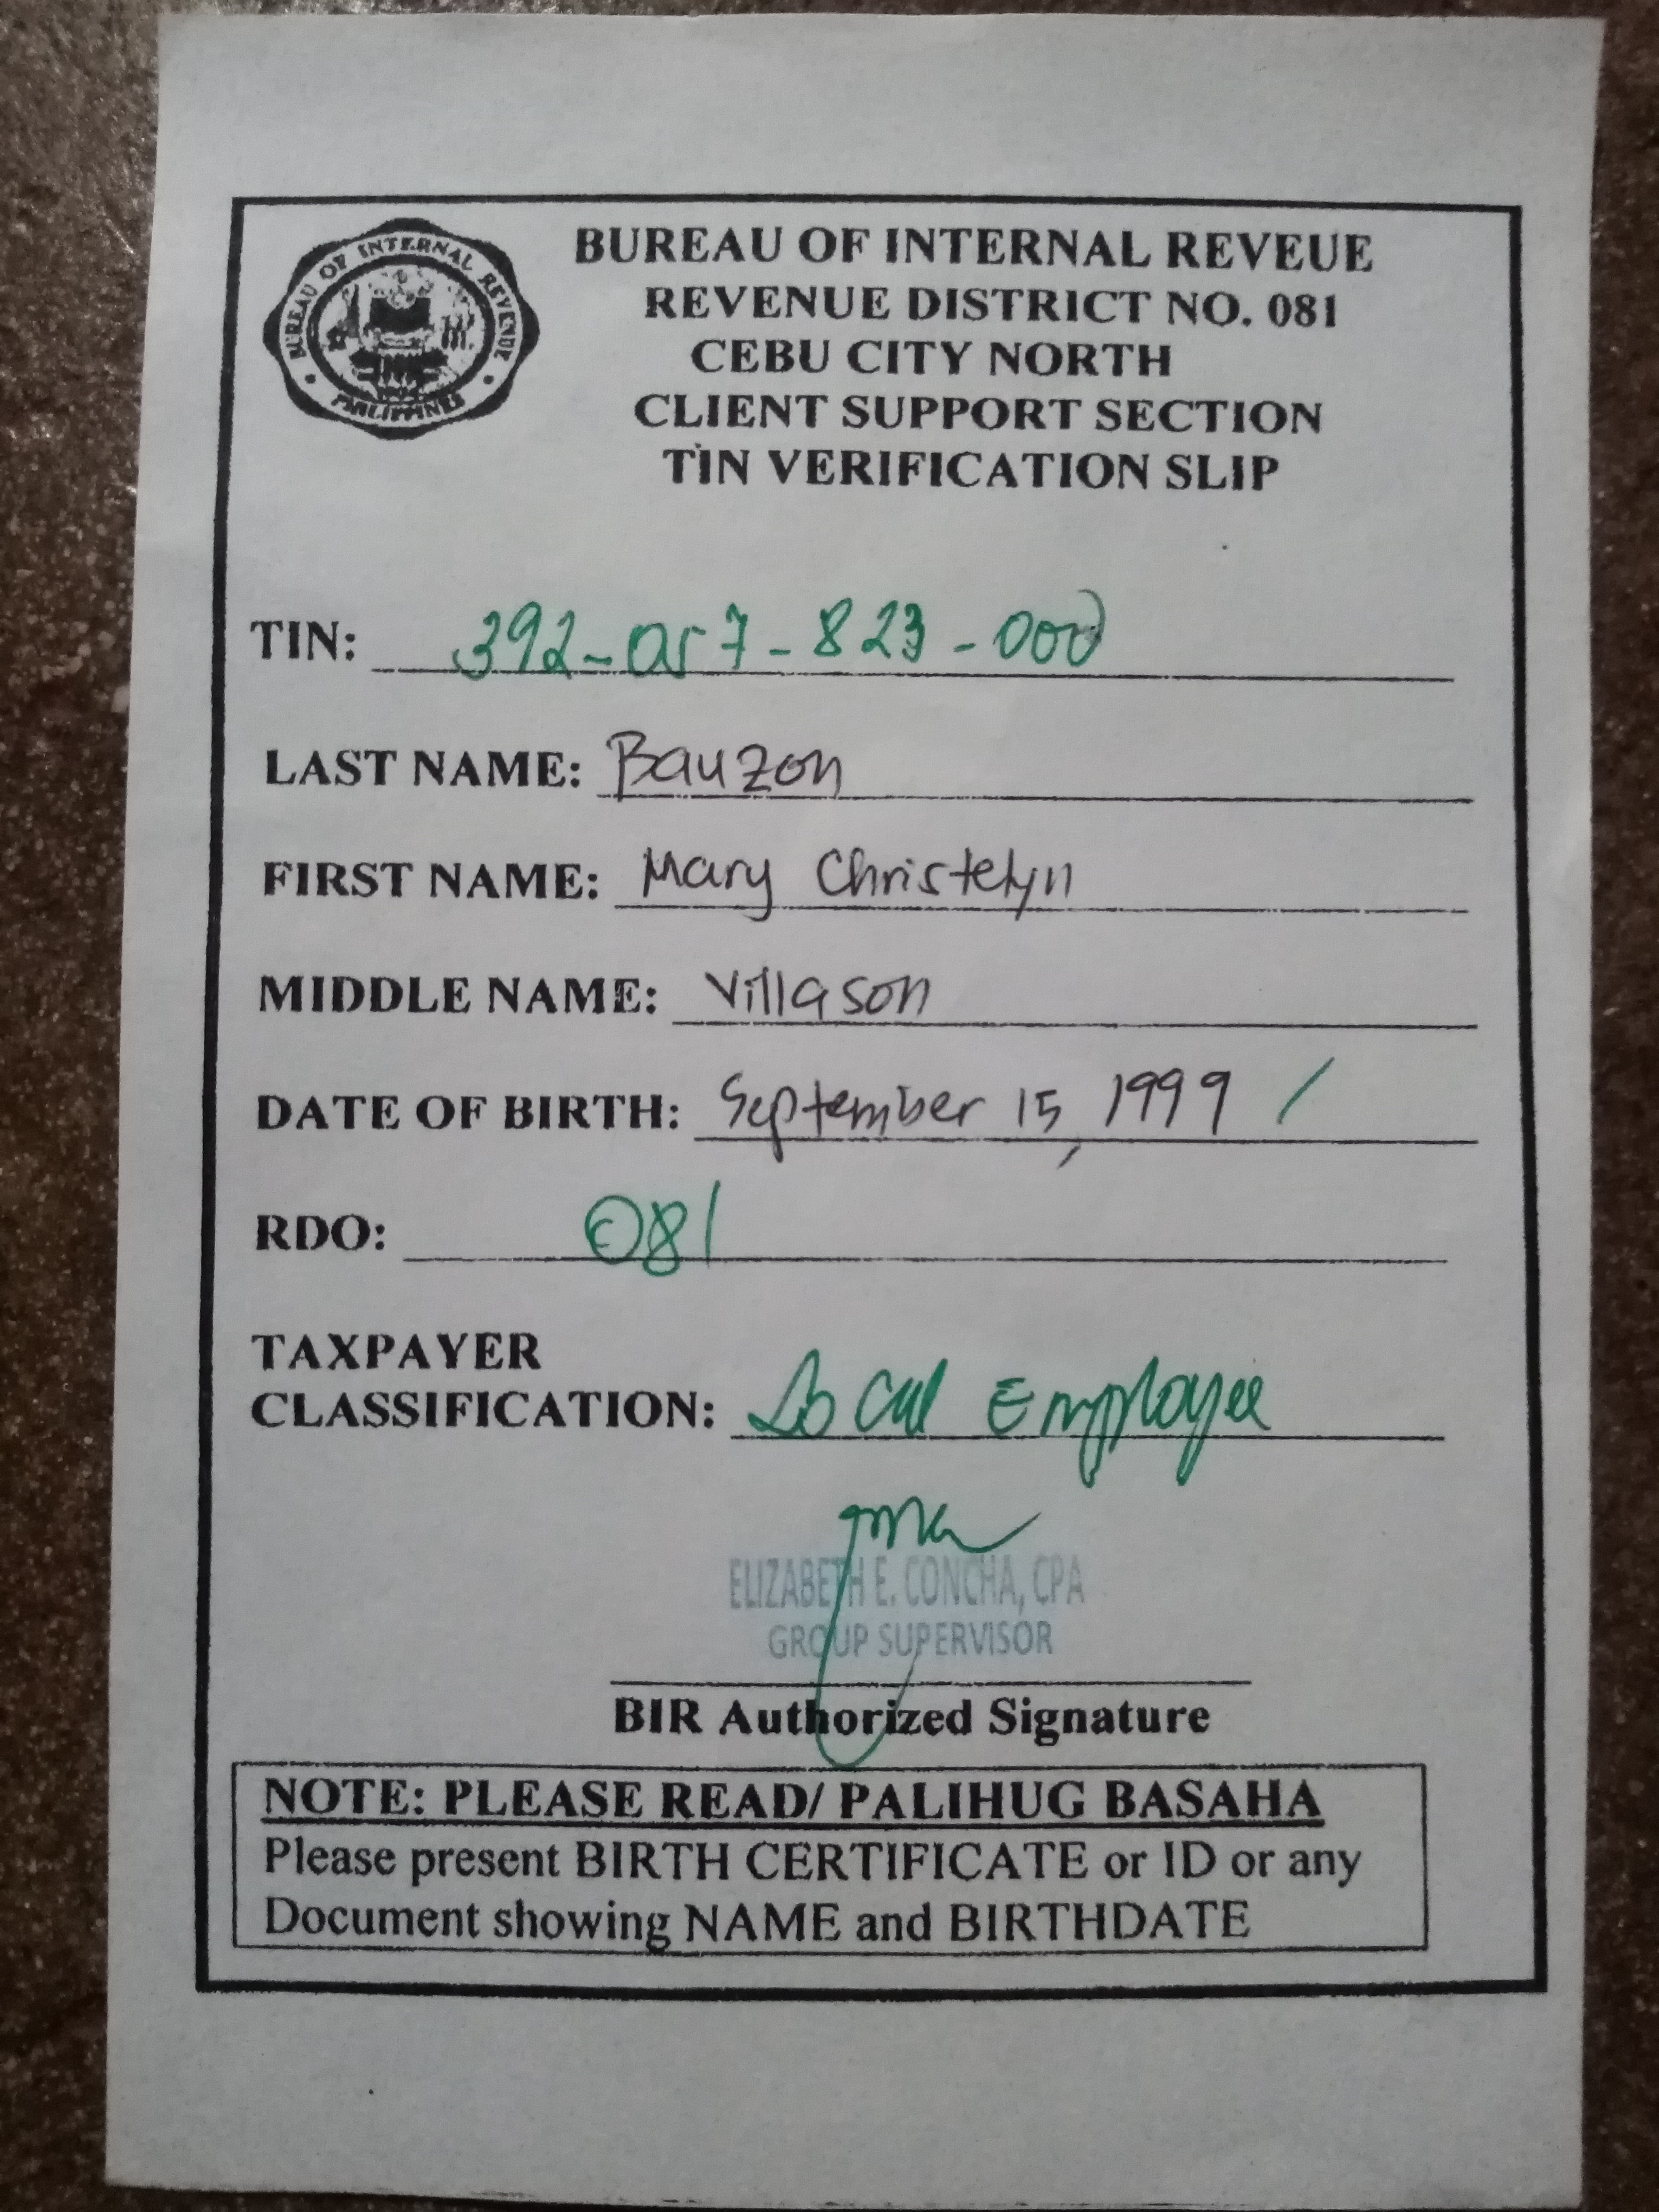 BUREAU OF INTERNAL REVENUE
PHILIPPINES
BUREAU OF INTERNAL REVEUE
REVENUE DISTRICT NO. 081
CEBU CITY NORTH
CLIENT SUPPORT SECTION
TIN VERIFICATION SLIP
TIN: 392-057-823-000
LAST NAME: Bauzon
FIRST NAME: Mary Christelyn
MIDDLE NAME: Villason
DATE OF BIRTH: September 15, 1999 /
RDO: 081
TAXPAYER
CLASSIFICATION: Local Employee
ELIZABETH E. CONCHA, CPA
GROUP SUPERVISOR
BIR Authorized Signature
NOTE: PLEASE READ/ PALIHUG BASAHA
Please present BIRTH CERTIFICATE or ID or any
Document showing NAME and BIRTHDATE